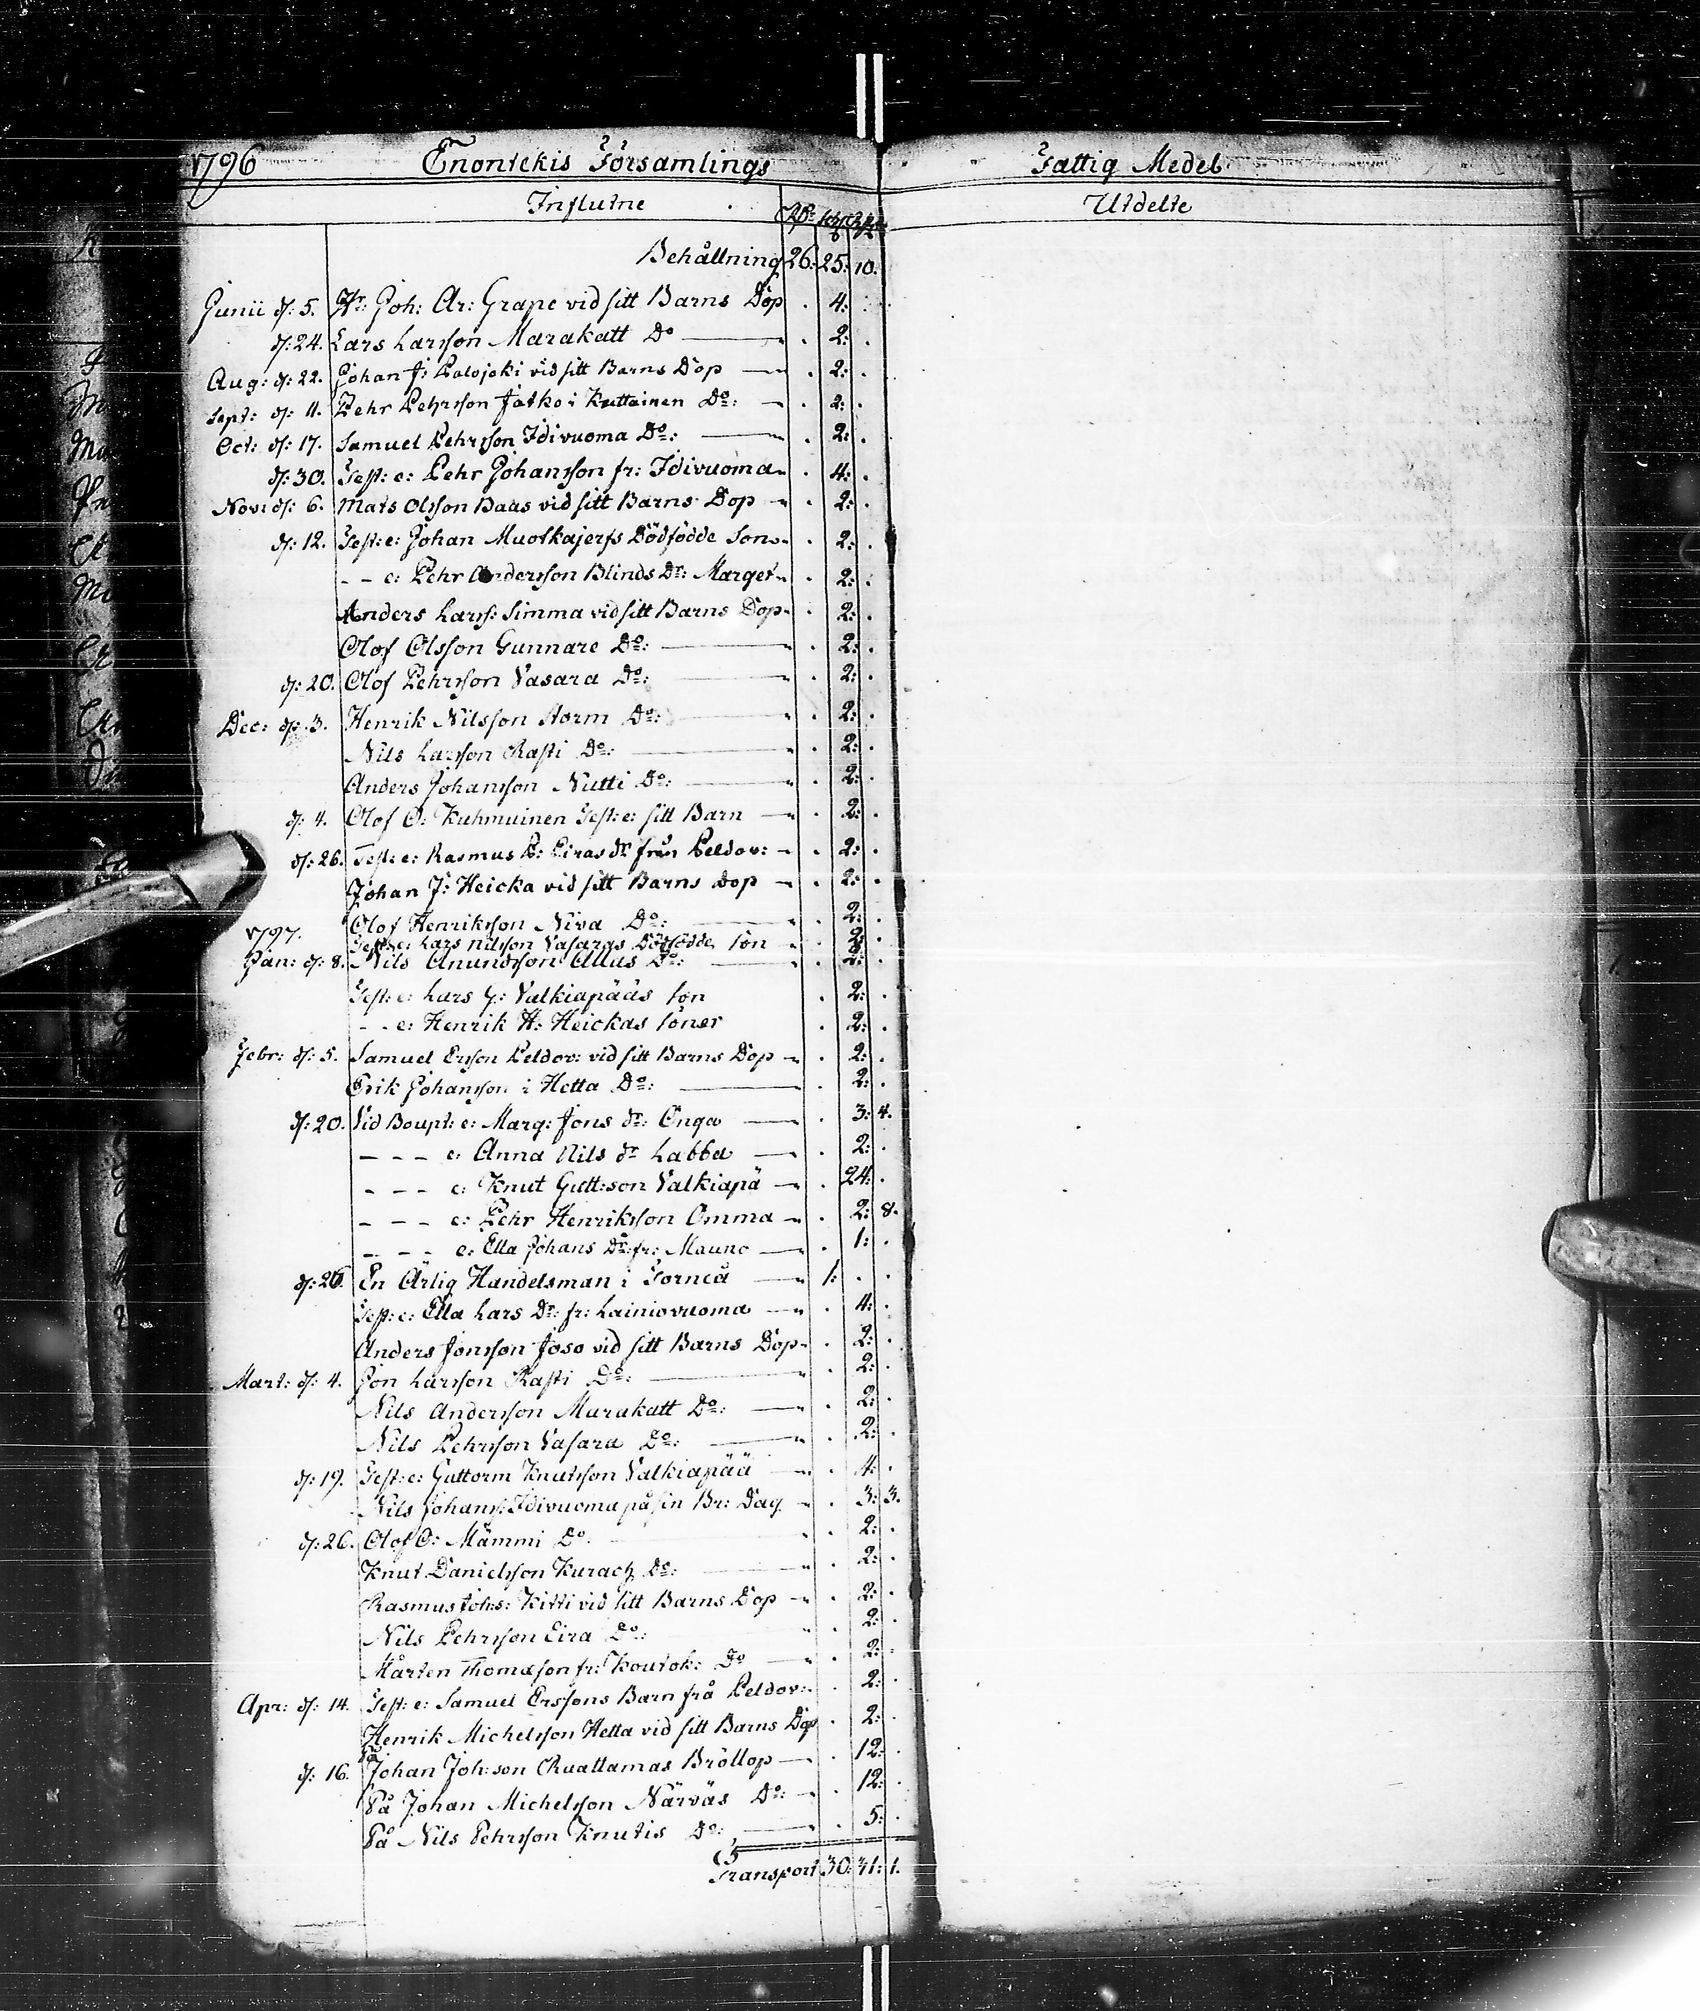 1796 Enontekis Församlings Fattig Medel
Influtne Utdelte
Behållning 26: 25: 10.
Junii d: 5. Hr: Joh: Ar: Grape vid sitt Barns Dop . 4: .
d: 24. Lars Larsson Marakatt Do . 2: .
Aug: d: 22. Johan J: Palojoki vid sitt Barns Dop . 2: .
Sept: d: 11. Pehr Pehrsson Jatko i Kuttainen Do: . 2: .
Oct: d: 17. Samuel Pehrsson Idivuoma Do: . 2: .
d: 30. Test: e: Pehr Johansson fr: Idivuoma . 4: .
Nov: d: 6. Mats Olsson Baas vid sitt Barns Dop . 2: .
d: 12. Test: e: Johan Muotkajerfs Dödfödde Son . 2: .
- - e: Pehr Andersson Blinds Dr: Marget . 2: .
Anders Larss: Simma vid sitt Barns Dop . 2: .
Olof Olsson Gunnare Do: . 2: .
d: 20. Olof Pehrsson Vasara Do: . 2: .
Dec: d: 3. Henrik Nilsson Horm Do: . 2: .
Nils Larsson Rasti Do: . 2: .
Anders Johansson Nutti Do: . 2: .
d: 4. Olof O: Kuhmuinen Test: e: sitt Barn . 2: .
d: 26. Test: e: Rasmus P: Eiras dr från Peldov: . 2: .
Johan J: Heicka vid sitt Barns Dop . 2: .
Olof Henriksson Niva Do: . 2: .
1797. Test: e: Lars Nilsson Vasaras Dödfödde Son . 2: .
Jan: d: 8. Nils Anundsson Allas Do: . 2: .
Test: e: Lars G: Valkiapääs son . 2: .
- - e: Henrik H: Heickas söner . 2: .
Febr: d: 5. Samuel Ersson Peldov: vid sitt Barns Dop . 2: .
Erik Johansson i Hetta Do: . 2: .
d: 20. Vid Boupt: e: Marg: Jons dr: Onga . 3: 4.
- - - e: Anna Nils dr Labba . 2: .
- - - e: Knut Gutt:son Valkiapä . 24: .
- - - e: Pehr Henriksson Omma . 2: 8.
- - - e: Ella Johans Dr: fr: Mauno . 1: .
d: 26. En Ärlig Handelsman i Torneå 1: . .
Test: e: Ella Lars Dr: fr: Lainiovuoma . 4: .
Anders Jonsson Joso vid sitt Barns Dop . 2: .
Mart: d: 4. Jon Larsson Rasti Do: . 2: .
Nils Andersson Marakatt Do: . 2: .
Nils Pehrsson Vasara Do: . 2: .
d: 19. Test: e: Guttorm Knutsson Valkiapää . 4: .
Nils Johanss: Idivuoma på sin Br: Dag . 3: 3.
d: 26. Olof O: Mämmi Do . 2: .
Knut Danielsson Do: . 2: .
Rasmus Johs: Kitti vid sitt Barns Dop . 2: .
Nils Pehrsson Eira Do: . 2: .
Mårten Thomasson fr: Koutok: Do . 2: .
Apr: d: 14. Test: e: Samuel Erssons Barn frå Peldov: . 2: .
Henrik Michelsson Hetta vid sitt Barns Dop . 2: .
d: 16. På Johan Joh:son Ruattamas Bröllop . 12: .
På Johan Michelsson Närväs Do: . 12: .
På Nils Pehrsson Knutis Do: . 5: .
Transport 30: 41: 1.